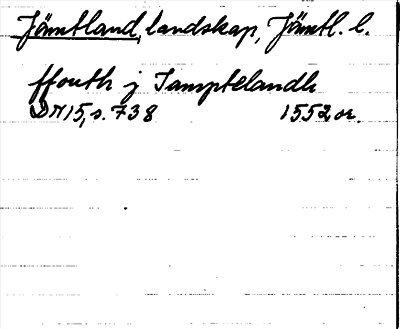 Jämtland, landskap, Jämtl. l.
ffouth j Jamptelandh
DN 15, s. 738 1552 or.